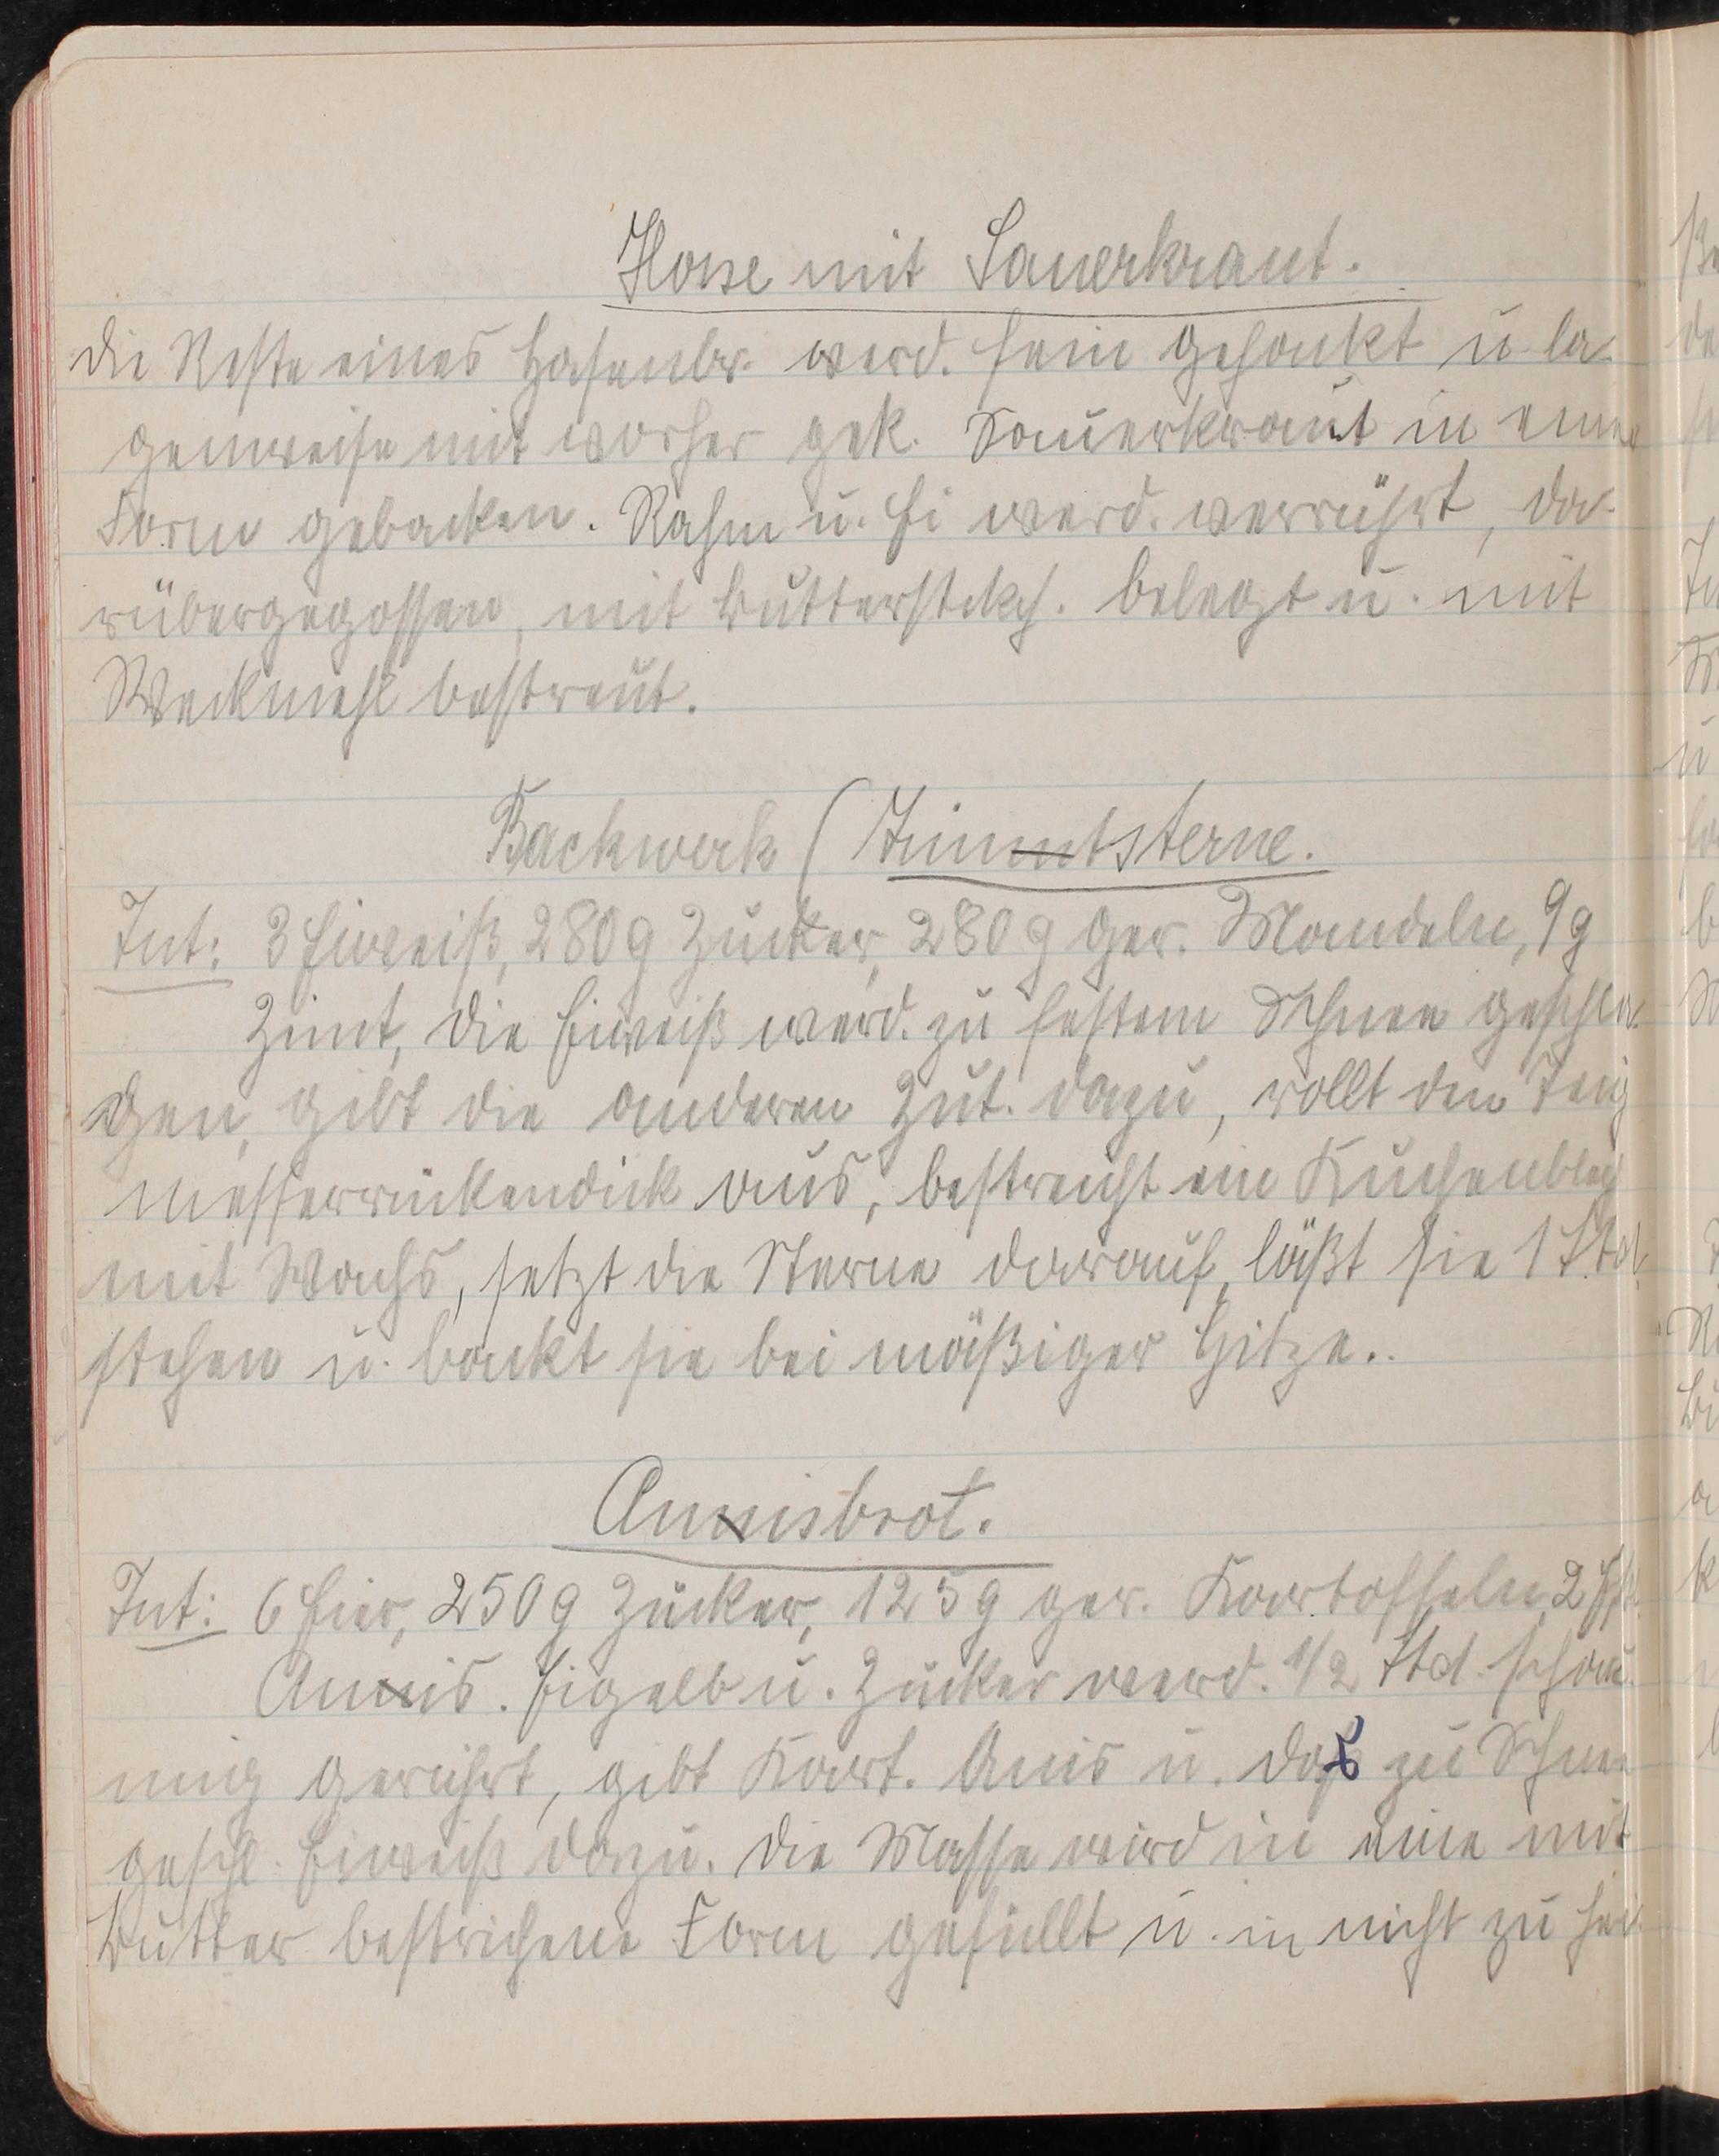 Hase mit Sauerkraut.
Die Reste eines Hasenbr. werd. fein gehackt u. la-
genweise mit vorher gek. Sauerkraut in einer
Form gebacken. Rahm u. Ei werd. verrührt, da-
rübergegossen, mit Butterstckch. belegt u. mit
Weckmehl bestreut.
Backwerk (Zimtsterne.
Zut: 3 Eiweiß, 280 g Zucker, 280 g ger. Mandeln, 9 g
Zimt, die Eiweiß werd. zu festem Schnee geschla-
gen, gibt die anderen Zut. dazu, rollt den Teig
messerrückendick aus, bestreicht ein Kuchenblech
mit Wachs, setzt die Sterne darauf, läßt sie 1 Std.
stehen u. backt sie bei mäßiger Hitze..
Anisbrot.
Zut: 6 Eier, 250 g Zucker, 125 g ger. Kartoffeln, 2
Anis. Eigelb u. Zucker werd. 1/2 Std. schau-
mig gerührt, gibt Kart. Anis u. das zu Schnee
geschl. Eiweiß dazu. Die Masse wird in eine mit
Butter bestrichene Form gefüllt u. in nicht zu hei-